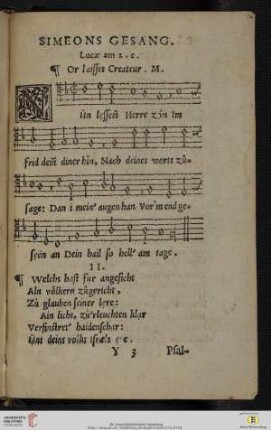 SIMEONS GESANG.
Lucæ am 2. c.
¶ Or laisses Createur. M.
NUn lessest Herre zyn Im
frid dein diner hin, Nach deines worts zů-
sage: Dan i mein' augen han Vor'm end ge-
seen an Dein hail so hell' am tage.
II.
¶ Welchs hast fur angesicht
Aln völkern zůgericht,
Zů glauben seiner lere:
Ain licht, zů'rleuchten klar
Verfinstret' haidenschar:
Unt deins volks israels ere.
Y 3 Psal-